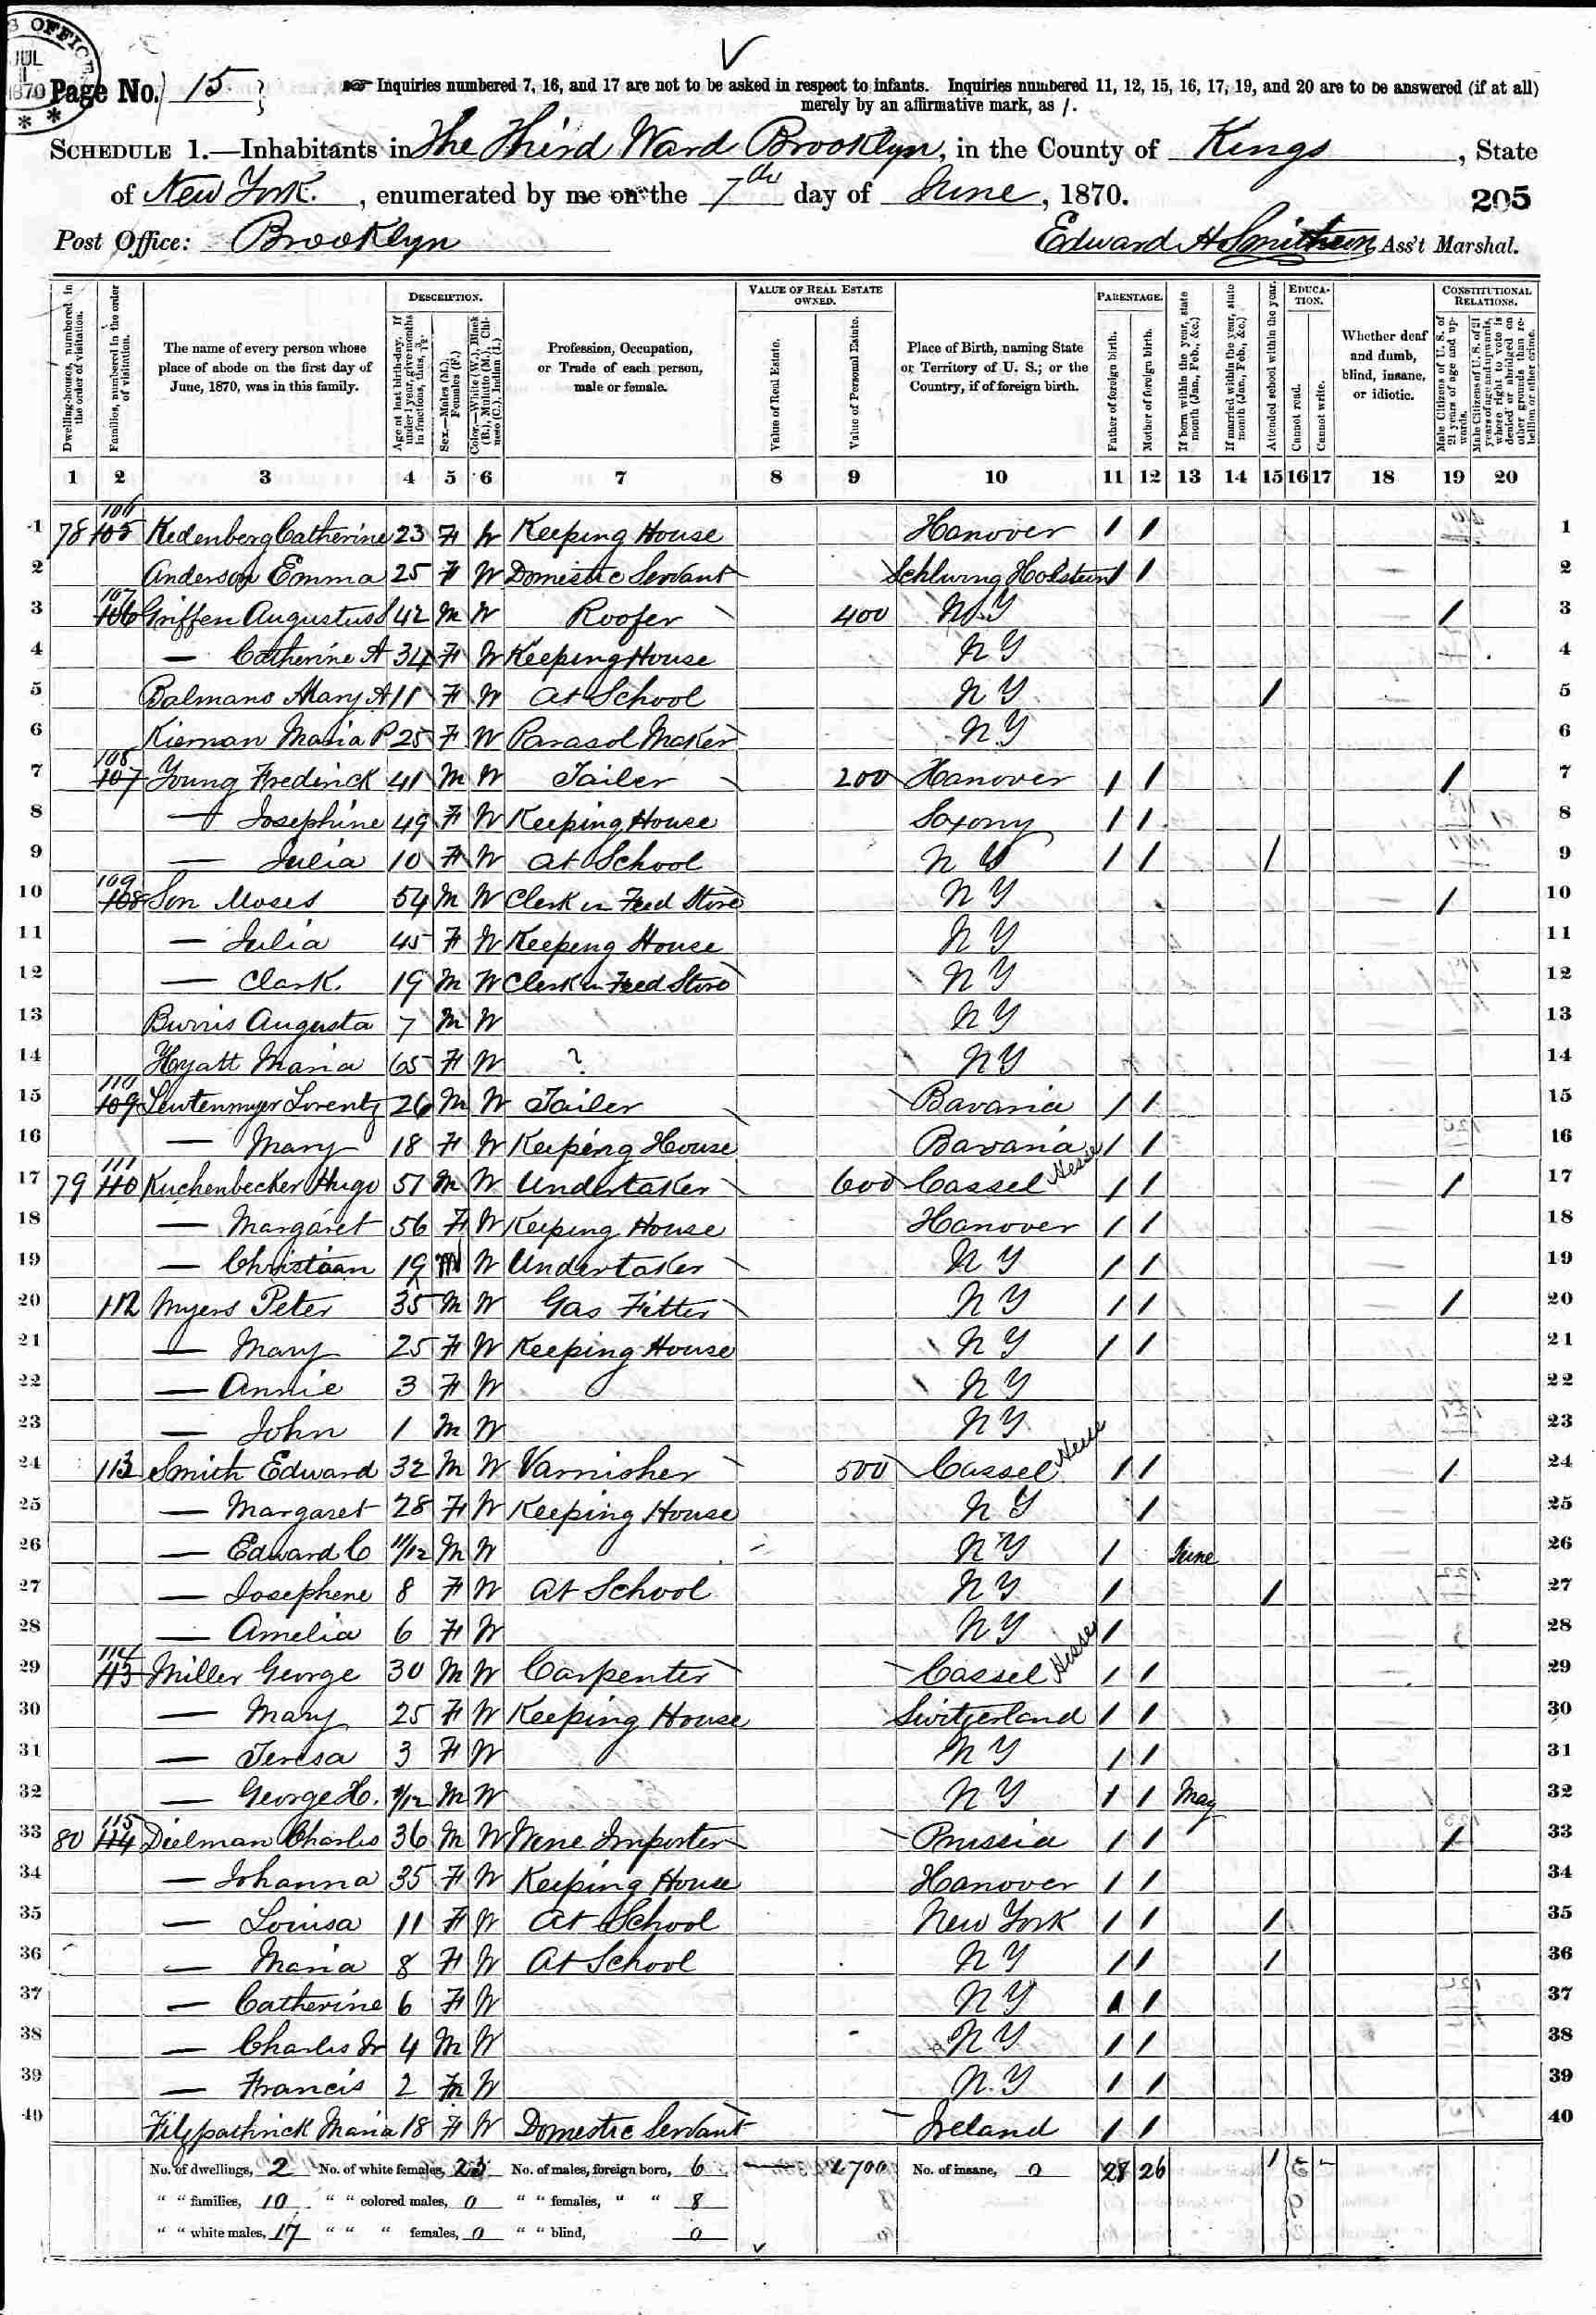 S OFFICE
JUL
1
1870
Page No. 15
Inquiries numbered 7, 16, and 17 are not to be asked in respect to infants. Inquiries numbered 11, 12, 15, 16, 17, 19, and 20 are to be answered (if at all)
merely by an affirmative mark, as /.
SCHEDULE 1.—Inhabitants in The Third Ward Brooklyn, in the County of Kings, State
of New York., enumerated by me on the 7th day of June, 1870.
205
Post Office: Brooklyn
Edward H Ass't Marshal.
Dwelling-houses, numbered in the order of visitation.
Families, numbered in the order of visitation.
The name of every person whose place of abode on the first day of June, 1870, was in this family.
DESCRIPTION.
Age at last birth-day. If under 1 year, give months in fractions, thus, 3/12.
Sex.—Males (M.), Females (F.)
Color.—White (W.), Black (B.), Mulatto (M.), Chinese (C.), Indian (I.)
Profession, Occupation, or Trade of each person, male or female.
VALUE OF REAL ESTATE OWNED.
Value of Real Estate.
Value of Personal Estate.
Place of Birth, naming State or Territory of U. S.; or the Country, if of foreign birth.
PARENTAGE.
Father of foreign birth.
Mother of foreign birth.
If born within the year, state month (Jan., Feb., &c.)
If married within the year, state month (Jan., Feb., &c.)
Attended school within the year.
EDUCATION.
Cannot read.
Cannot write.
Whether deaf and dumb, blind, insane, or idiotic.
CONSTITUTIONAL RELATIONS.
Male Citizens of U. S. of 21 years of age and upwards.
Male Citizens of U. S. of 21 years of age and upwards, where right to vote is denied or abridged on other grounds than rebellion or other crime.
1 2 3 4 5 6 7 8 9 10 11 12 13 14 15 16 17 18 19 20
1 78 105 106 Kedenberg Catherine 23 F W Keeping House Hanover / / 1
2 Anderson Emma 25 F W Domestic Servant Schlwing Holstein / / 2
3 106 107 Griffen Augustus S 42 M W Roofer 400 N.Y / 3
4 — Catherine A 34 F W Keeping House N Y 4
5 Balmano Mary A 11 F W At School N Y / 5
6 Kiernan Maria P 25 F W Parasol Maker N.Y 6
7 107 108 Young Frederick 41 M W Tailer 200 Hanover / / / 7
8 — Josephine 49 F W Keeping House Saxony / / 8
9 — Julia 10 F W At School N Y / / / 9
10 108 109 Son Moses 54 M W Clerk in Feed Store N Y / 10
11 — Julia 45 F W Keeping House N Y 11
12 — Clark 19 M W Clerk in Feed Store N Y 12
13 Burris Augusta 7 M W N Y 13
14 Hyatt Maria 65 F W ? N Y 14
15 109 110 Leutenmyer Lorentz 26 M W Tailer Bavaria / / 15
16 — Mary 18 F W Keeping House Bavaria / / 16
17 79 110 111 Kuchenbecker Hugo 51 M W Undertaker 600 Cassel Hesse / / / 17
18 — Margaret 56 F W Keeping House Hanover / / 18
19 — Christian 19 M W Undertaker N Y / / 19
20 112 Myers Peter 35 M W Gas Fitter N Y / / / 20
21 — Mary 25 F W Keeping House N Y / / 21
22 — Annie 3 F W N Y 22
23 — John 1 M W N Y 23
24 113 Smith Edward 32 M W Varnisher 500 Cassel Hesse / / / 24
25 — Margaret 28 F W Keeping House N Y / 25
26 — Edward C 11/12 M W N Y / June 26
27 — Josephene 8 F W At School N Y / / 27
28 — Amelia 6 F W N Y / 28
29 113 114 Miller George 30 M W Carpenter Cassel Hesse / / 29
30 — Mary 25 F W Keeping House Switzerland / / 30
31 — Teresa 3 F W N Y / / 31
32 — George H. 1/12 M W N Y / / May 32
33 80 114 115 Dielman Charles 36 M W Wine Importer Prussia / / / 33
34 — Johanna 35 F W Keeping House Hanover / / 34
35 — Louisa 11 F W At School New York / / / 35
36 — Maria 8 F W At School N Y / / / 36
37 — Catherine 6 F W N Y / / 37
38 — Charles Jr 4 M W N Y / / 38
39 — Francis 2 M W N.Y / / 39
40 Fitzpathrick Maria 18 F W Domestic Servant Ireland / / 40
No. of dwellings, 2 No. of white females, 23 No. of males, foreign born, 6 1700 No. of insane, 0 28 26
" " families, 10 " " colored males, 0 " " females, " " 8
" " white males, 17 " " " females, 0 " " blind, 0